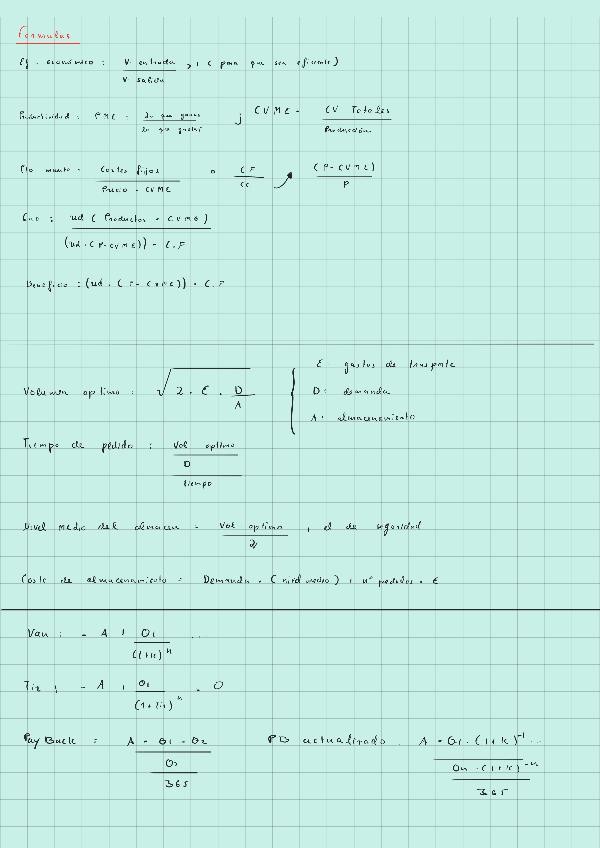 Formulas
Ef. económico: V. entrada / V. salida > 1 (para que sea eficiente)
Productividad: PME = lo que ganas / lo que gastas ; CVME = CV Totales / Producción
Pto muerto = Costes fijos / Precio - CVME o CF / cc (P-CVME) / P
ud (Productos - CVME) / (ud. (P-CVME)) - C.F
Beneficio: (ud. (P-CVME)) - C.F
Volumen optimo: √ 2 · E · D / A
E: gastos de transporte
D: demanda
A: almacenamiento
Tiempo de pedido: Vol optimo / D / tiempo
Nivel medio del almacen = Vol optimo / 2 + el de seguridad
Coste de almacenamiento = Demanda · (nivel medio) + nº pedidos · E
Van: - A + Q1 / (1+k)^n ...
Tir: - A + Q1 / (1+tir)^n = 0
PayBack: A - Q1 - Q2 / Q3 / 365
PB actualizado: A - Q1 · (1+k)^-1 ... / Qn · (1+k)^-n / 365